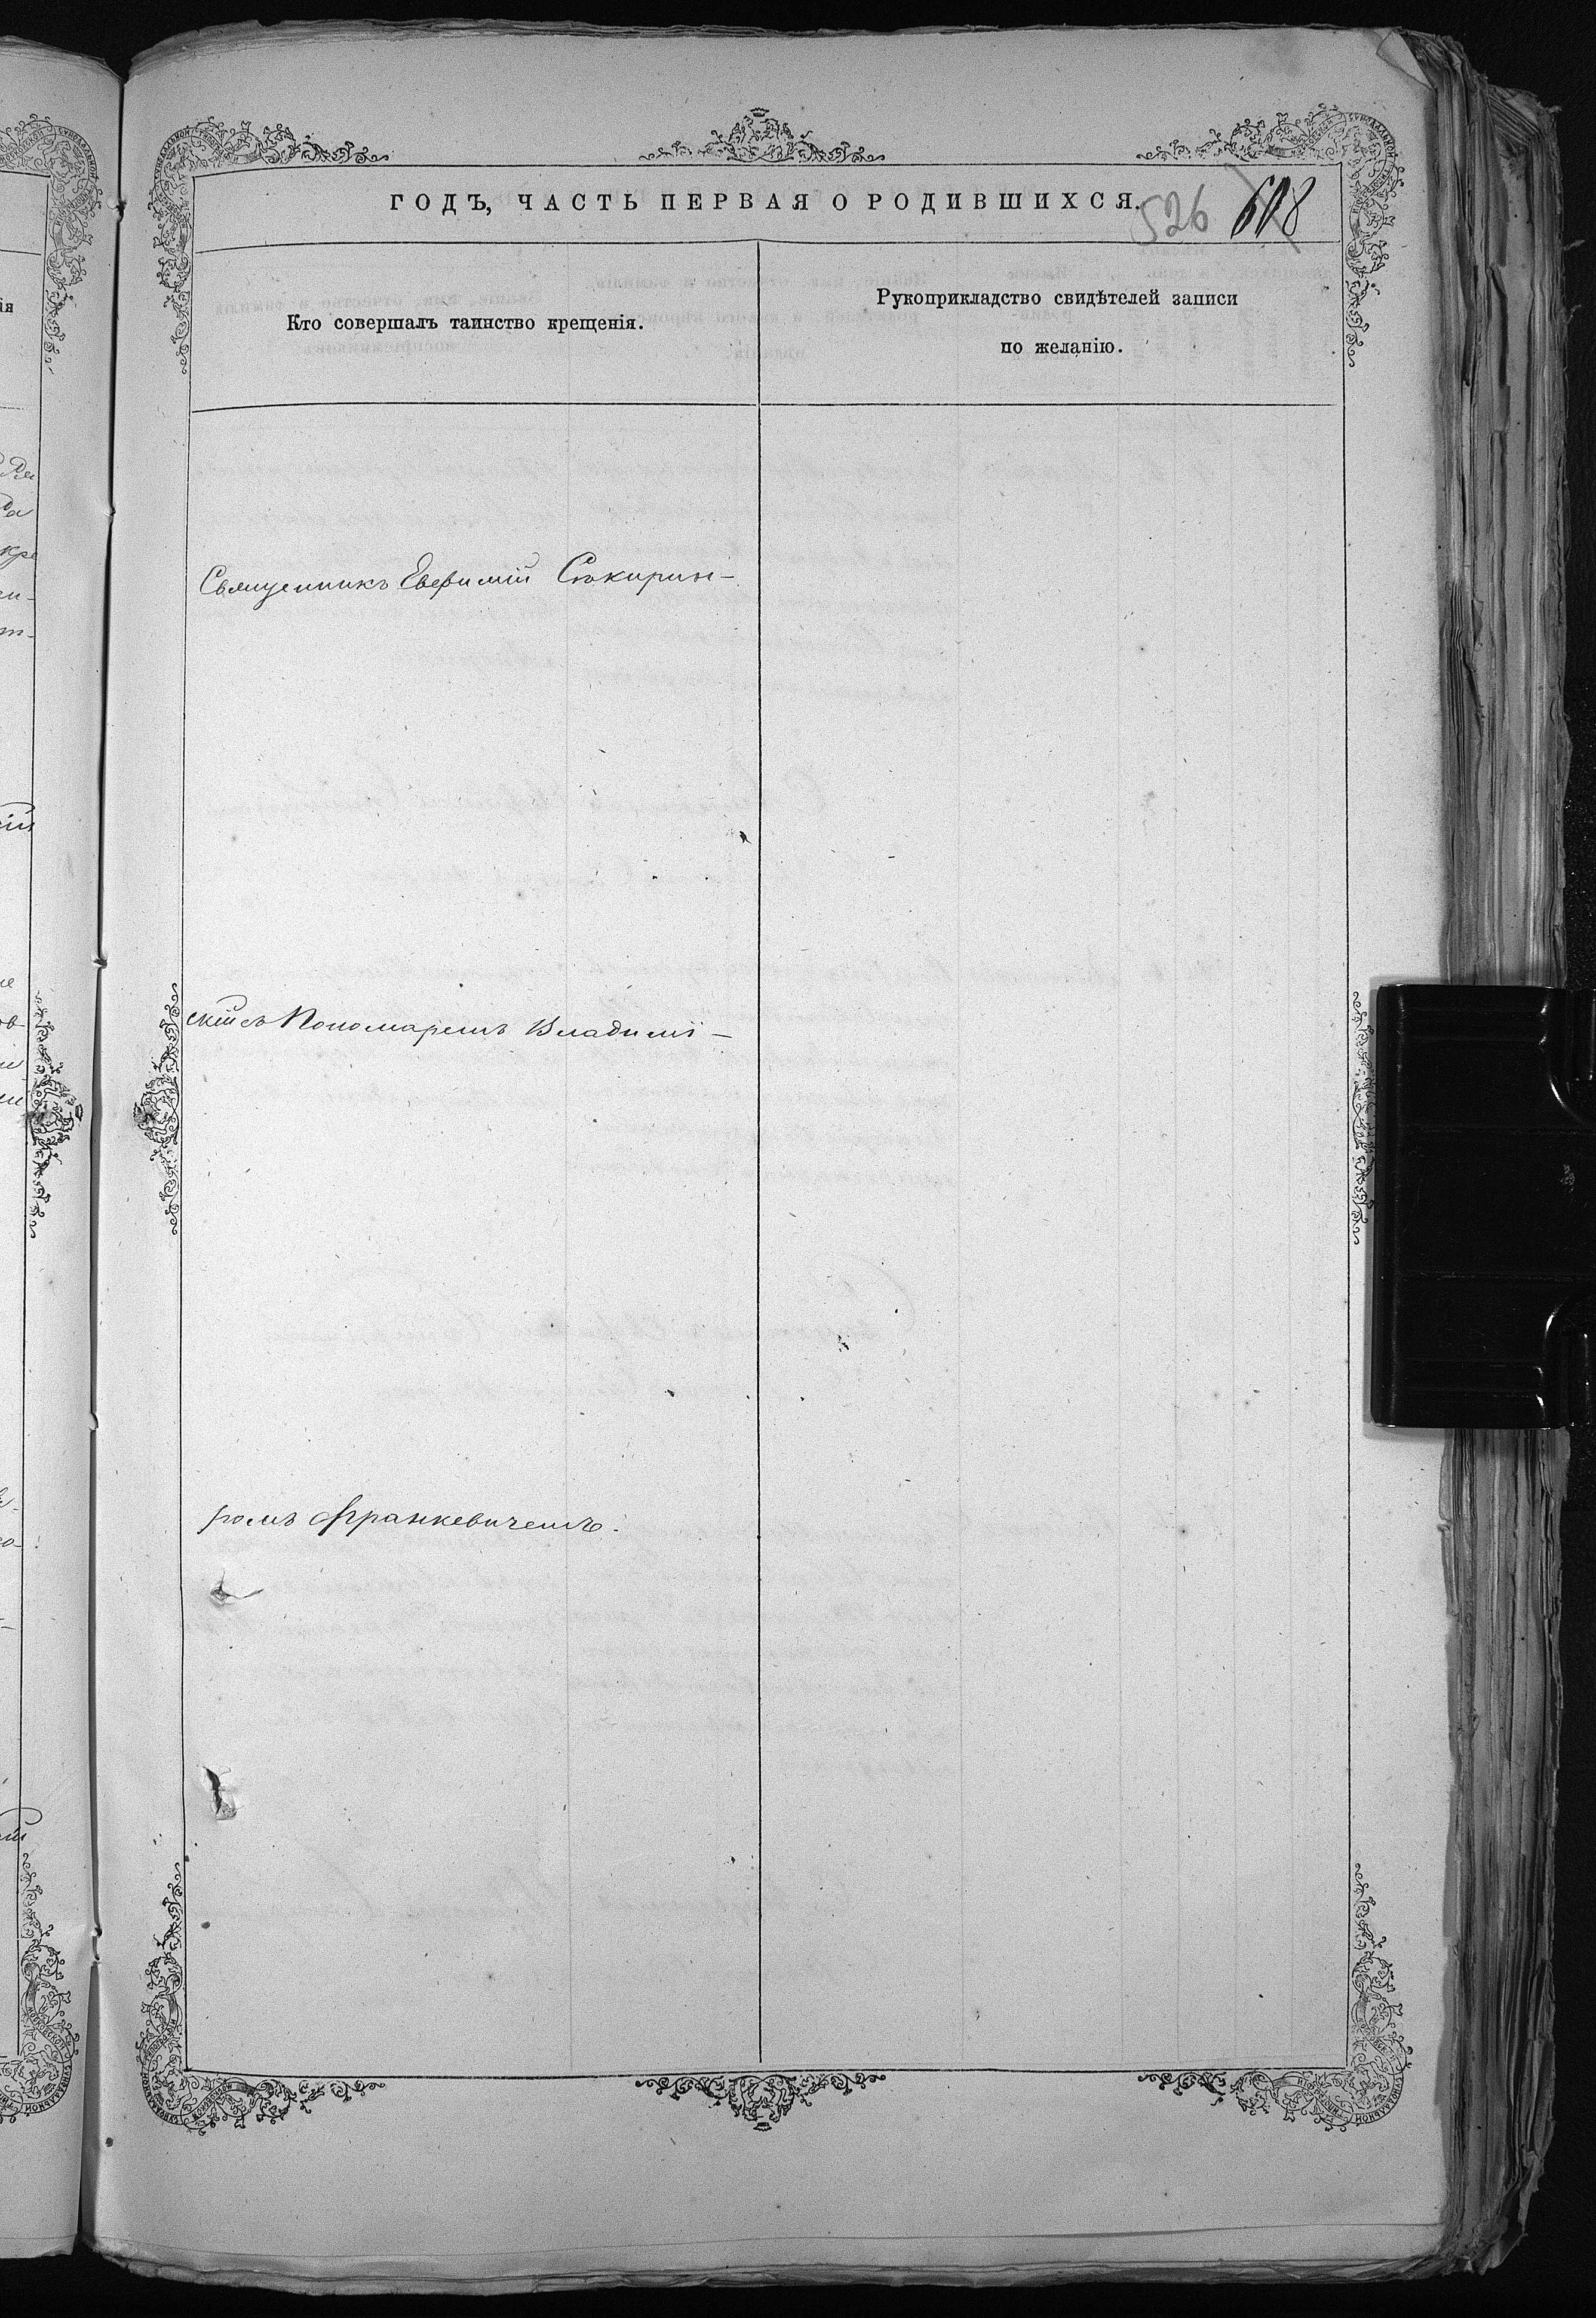 ГОДЪ, ЧАСТЬ ПЕРВАЯ О РОДИВШИХСЯ.
526 608
Кто совершалъ таинство крещенія.
Рукоприкладство свидѣтелей записи
по желанію.
Священникъ Евфимій Сѣкирин-
скій съ Пономаремъ Владимі-
ромъ Франкевичемъ.